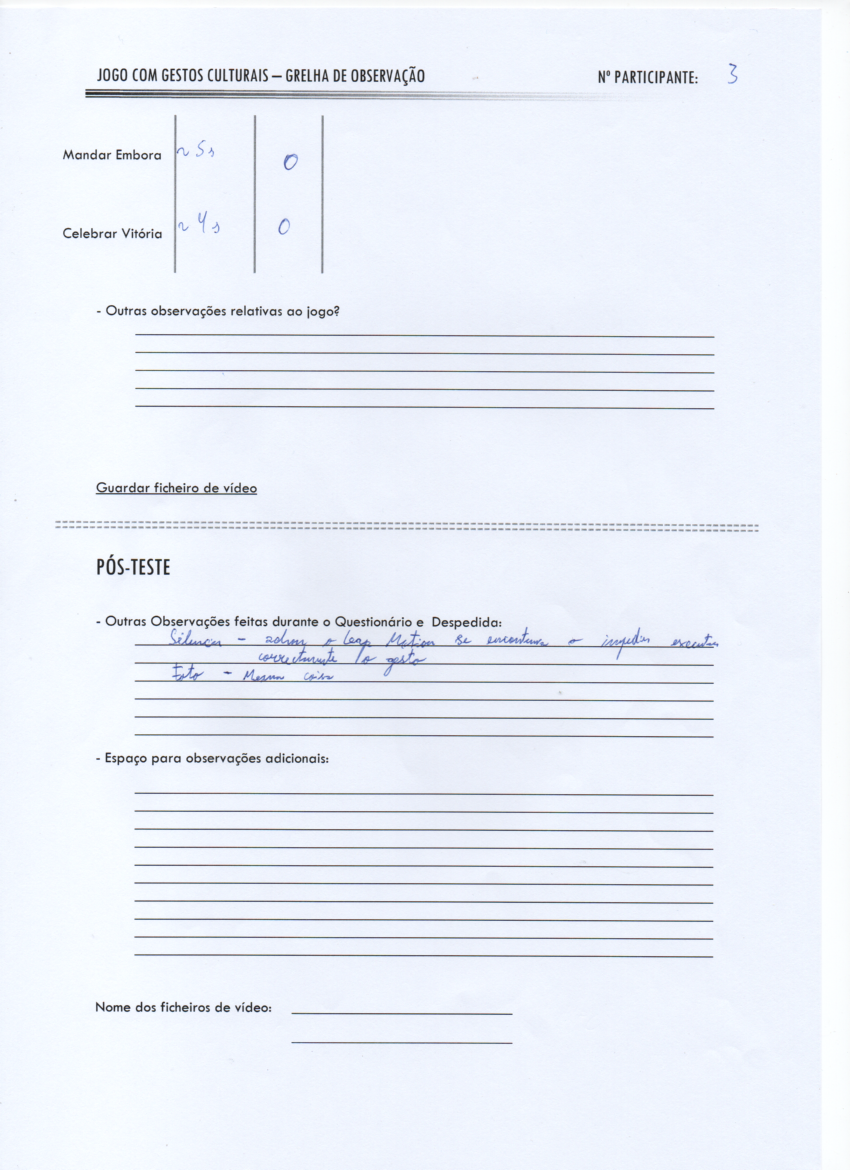 JOGO COM GESTOS CULTURAIS – GRELHA DE OBSERVAÇÃO Nº PARTICIPANTE: 3
Mandar Embora ~ 5s 0
Celebrar Vitória ~ 4s 0
- Outras observações relativas ao jogo?
Guardar ficheiro de vídeo
PÓS-TESTE
- Outras Observações feitas durante o Questionário e Despedida:
Silenciar - o Leap Motion se encontrava a impedir executar
correctamente o gesto
- Mesma coisa
- Espaço para observações adicionais:
Nome dos ficheiros de vídeo: